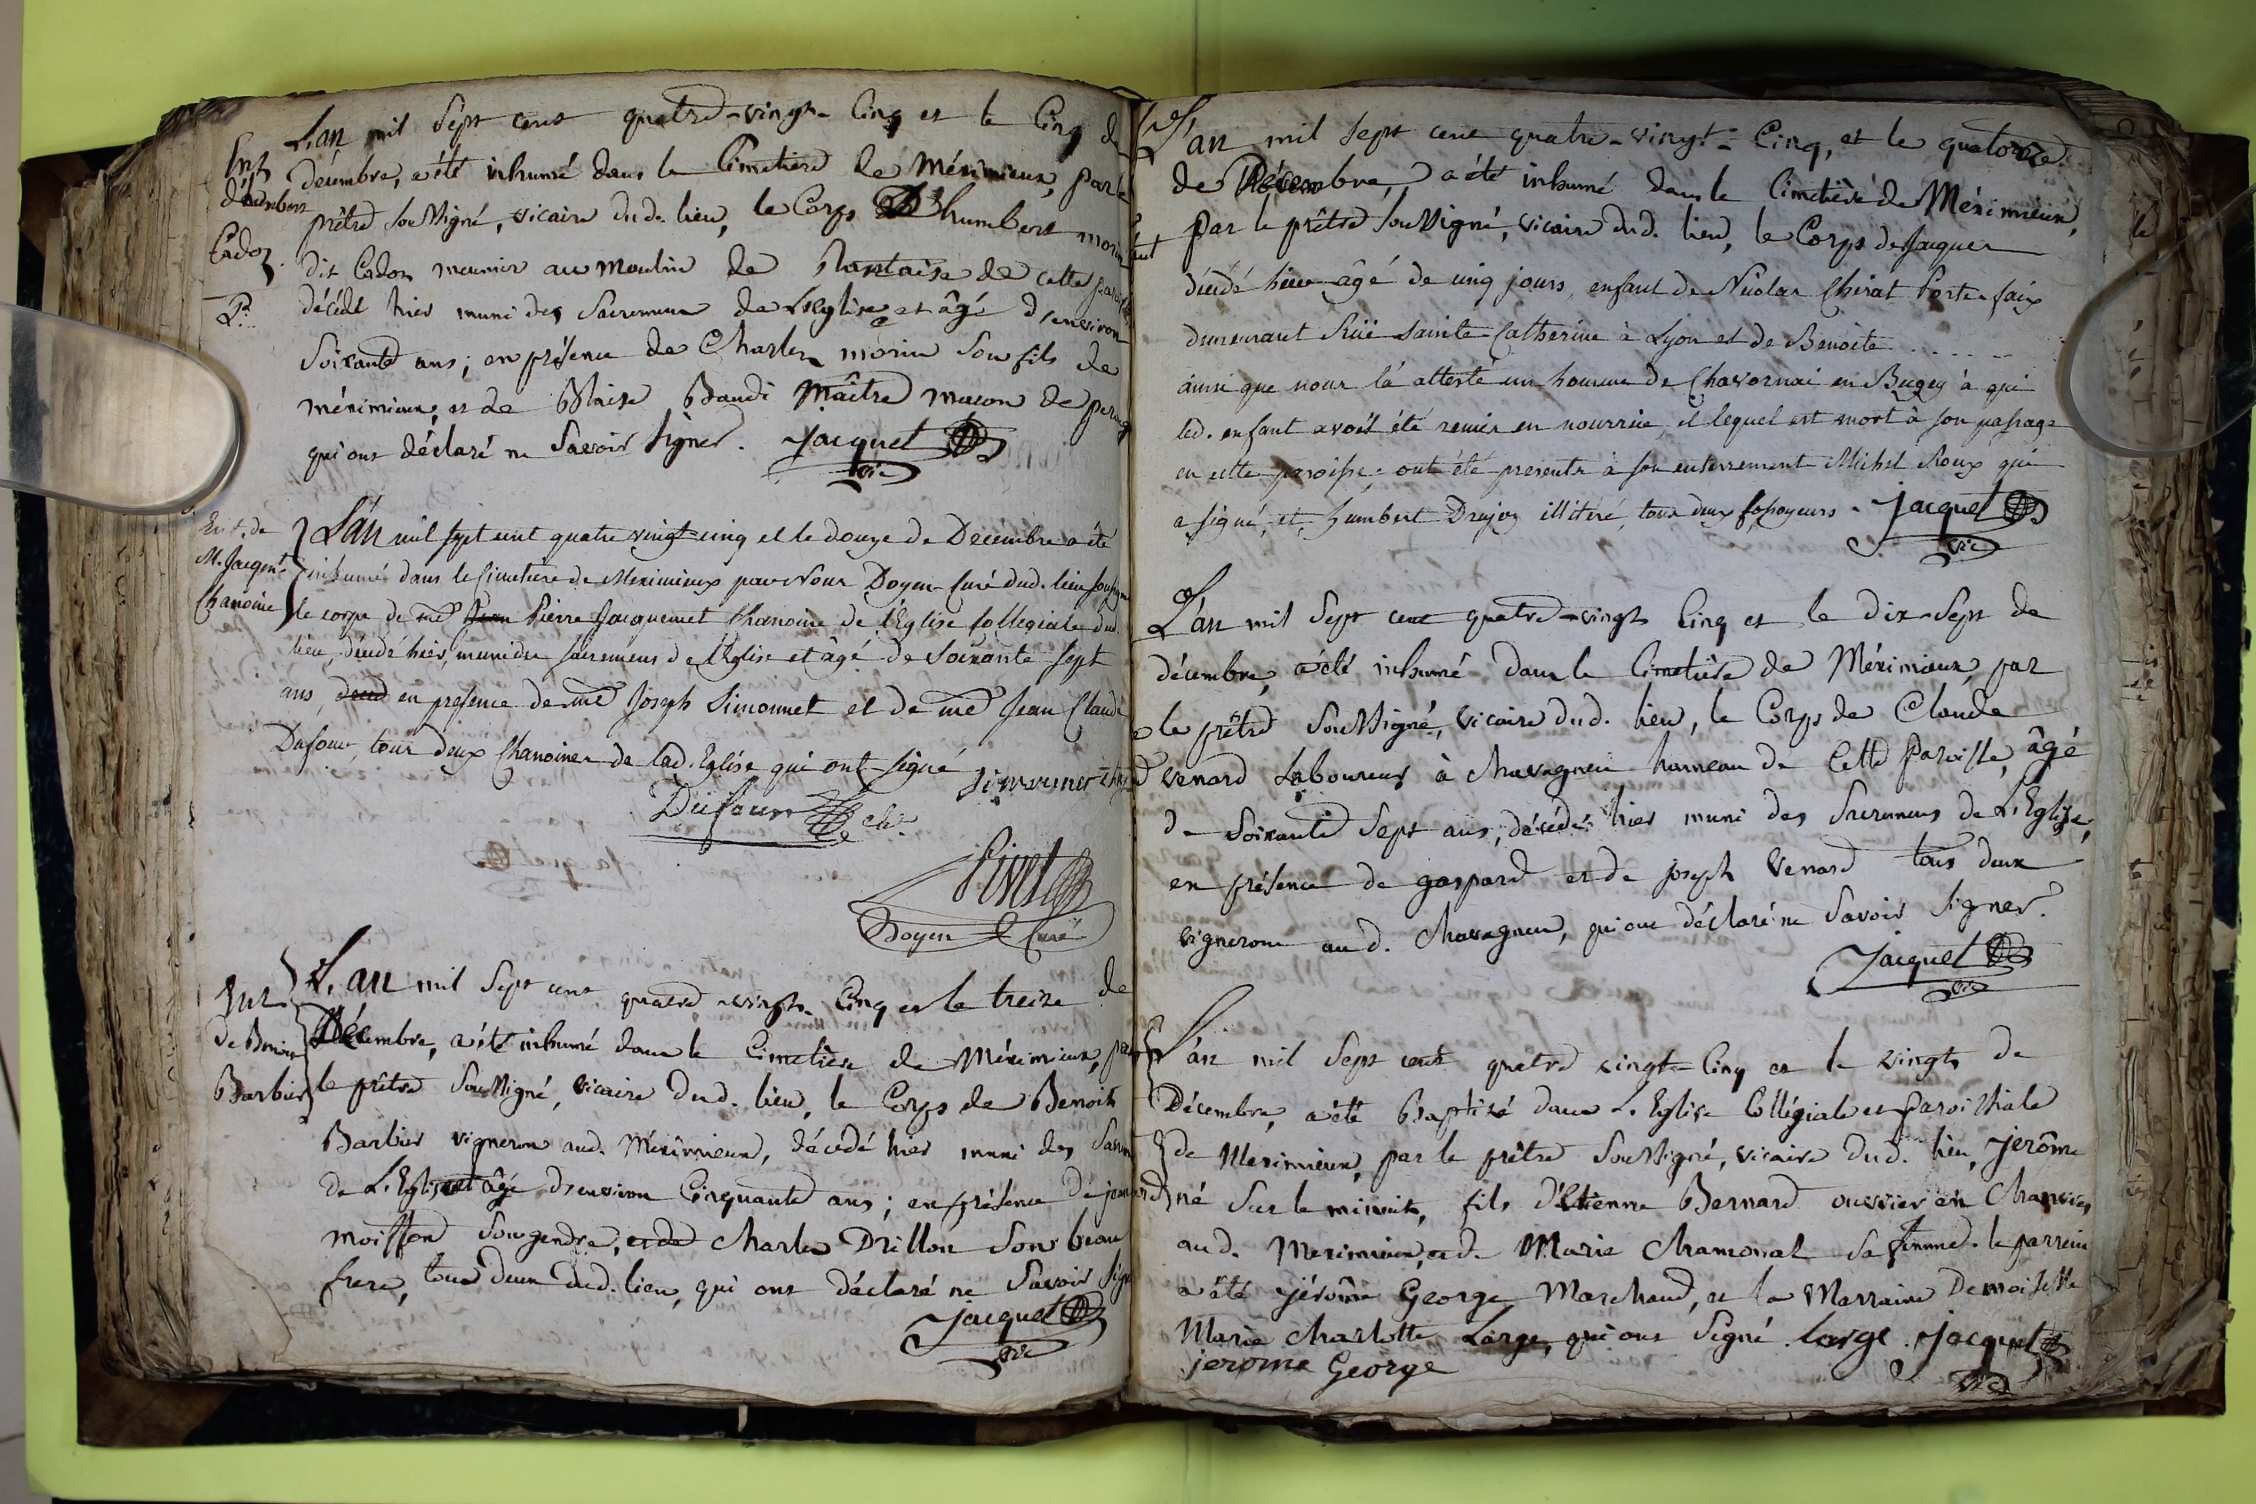 L'an mil Sept cent quatre-vingt-Cinq et le Cinq de
Ent décembre, a été inhumé dans le Cimetiere de Méximieux, par le
d'humbert prêtre Soussigné, vicaire dud. lieu, le Corps D'humbert morin
Cadoz dit Cadoz meunier au moulin de de cette paroisse
P. décédé hier muni des Sacremens de L'Eglise et âgé d'environ
Soixante ans; en présence de Charles morin Son fils de
méximieux, et de Blaise Baudi Maître macon de
qui ont déclaré ne Savoir Signer. Jacquet
vic
Ent. de L'an mil sept cent quatre vingt-cinq et le douze de Decembre a été
M. Jacquet inhumé dans le Cimetiere de Meximieux par Nous Doyen Curé dud. lieu soussigné
Chanoine le corps de me Jean Pierre Jacquemet Chanoine de l'Eglise Collegiale dud.
lieu, décédé hier, muni des sacremens de l'Eglise et âgé de Soixante-sept
ans, en presence de me Joseph Simonnet et de me Jean Claude
Dufour, tous deux Chanoines de lad. Eglise qui ont signé Simonnet
Dufour ch.
Doyen & Curé
Ent L'an mil Sept cent quatre-vingt-Cinq et le treize de
de Benoit Décembre, a été inhumé dans le Cimetière de Méximieux, par
Barbier le prêtre Soussigné, vicaire dud. lieu, le Corps de Benoit
Barbier vigneron aud. Méximieux, décédé hier muni des Sacrem
de L'Eglise et âgé d'environ Cinquante ans; en présence de
moisson Son gendre, et de Charles Drillon Son beau
frere, tous deux dud. lieu, qui ont déclaré ne Savoir Sign
Jacquet
vic
L'an mil Sept cent quatre-vingt-Cinq, et le quatorze
de Décembre, a été inhumé dans le Cimetière de Méximieux,
par le prêtre Soussigné, vicaire dud. lieu, le Corps de Jacques
décédé hier âgé de cinq jours, enfant de Nicolas Chirat Porte-faix
demeurant Ruë Sainte Catherine à Lyon et de Benoite . . . . .
ainsi que nous l'a attesté un homme de Chavornai en Bugey à qui
led. enfant avoit été remis en nourrice, et lequel est mort à son passage
en cette paroisse; ont été presents à son enterrement Michel Roux qui
a signé, et, humbert Drujoz illitéré, tous deux fossoyeurs. Jacquet
vic
L'an mil Sept cent quatre-vingt Cinq et le Dix-Sept de
décembre, a été inhumé dans le Cimetière de Méximieux, par
le prêtre Soussigné, vicaire dud. lieu, le Corps de Claude
venard Laboureur à Chavagneu hameau de Cette Paroisse, âgé
de Soixante Sept ans, décédé hier muni des Sacremens de L'Eglise,
en présence de gaspard et de joseph venard tous deux
vignerons aud. Chavagneu, qui ont déclaré ne Savoir Signer.
Jacquet
vic
L'an mil Sept cent quatre vingt-Cinq et le vingt de
Décembre, a été Baptisé dans L'Eglise Collégiale et paroissiale
de Meximieux, par le prêtre Soussigné, vicaire dud. lieu, jerôme
né Sur le minuit, fils d'Etienne Bernard ouvrier en Chanvres
aud. Meximieux, et de Marie Chamonal Sa femme. le parrein
a été jérôme George Marchand, et la Marraine Demoiselle
Marie Charlotte Large, qui ont Signé. Large. Jacquet
jerome George vic